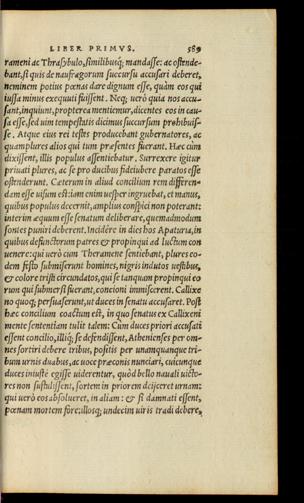 LIBER PRIMVS. 589
rameni ac Thrasybulo, similibusq; mandasse: ac ostende-
bant, si quis de naufragorum succursu accusari deberet,
neminem potius pœnas dare dignum esse, quàm eos qui
iussa minus exequuti fuissent. Neq; uerò quia nos accu-
sant, inquiunt, propterea mentimur, dicentes eos in cau-
sa esse, sed uim tempestatis dicimus succursum prohibuis-
se. Atque eius rei testes producebant gubernatores, ac
quamplures alios qui tum præsentes fuerant. Hæc cùm
dixissent, illis populus assentiebatur. Surrexere igitur
priuati plures, ac se pro ducibus fideiubere paratos esse
ostenderunt. Cæterum in aliud concilium rem differen-
dam esse uisum est: iam enim uesper ingruebat, et manus,
quibus populus decernit, amplius conspici non poterant:
interim æquum esse senatum deliberare, quemadmodum
sontes puniri deberent. Incidêre in dies hos Apaturia, in
quibus defunctorum patres & propinqui ad luctum con-
uenere: qui uerò cum Theramene sentiebant, plures eo-
dem festo submiserunt homines, nigris indutos uestibus,
& colore tristi circundatos, qui se tanquam propinqui eo-
rum qui submersi fuerant, concioni immiscerent. Callixe
no quoq; persuaserunt, ut duces in senatu accusaret. Post
hæc concilium coactum est, in quo senatus ex Callixeni
mente sententiam tulit talem: Cum duces priori accusati
essent concilio, illiq; se defendissent, Athenienses per om-
nes sortiri debere tribus, positis per unamquanque tri-
bum urnis duabus, ac uoce præconis nunciari, cuicunque
duces iniustè egisse uiderentur, quòd bello nauali uicto-
res non sustulissent, sortem in priorem deijceret urnam:
qui uerò eos absolueret, in aliam: & si damnati essent,
pœnam mortem fore: illosq; undecim uiris tradi debere,